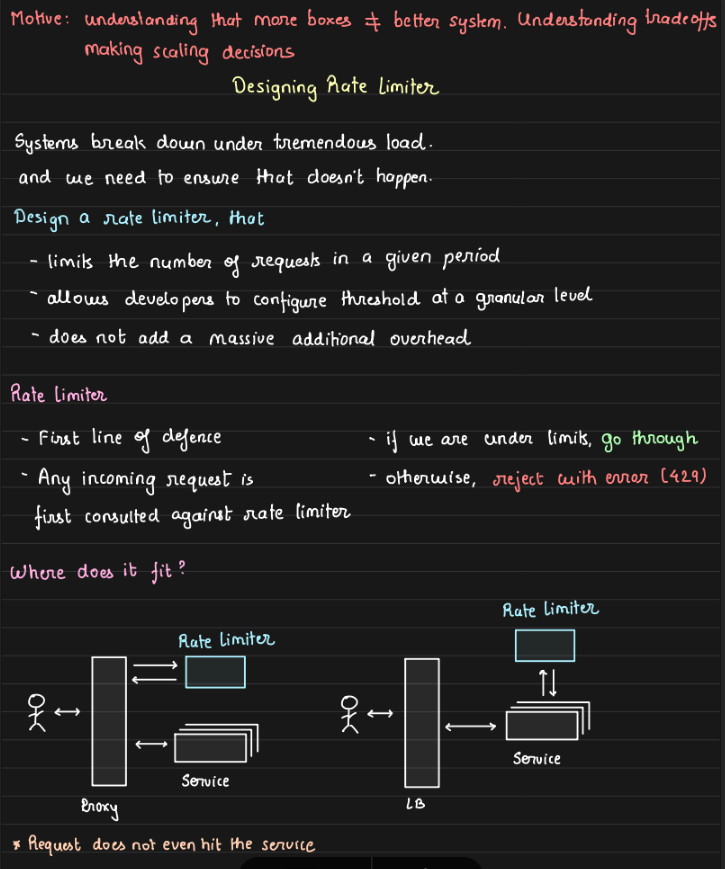 Motive: understanding that more boxes ≠ better system. Understanding tradeoffs
making scaling decisions
Designing Rate Limiter
Systems break down under tremendous load.
and we need to ensure that doesn't happen.
Design a rate limiter, that
- limits the number of requests in a given period
- allows developers to configure threshold at a granular level
- does not add a massive additional overhead
Rate limiter
- First line of defence
- Any incoming request is
first consulted against rate limiter
- if we are under limits, go through
- otherwise, reject with error (429)
Where does it fit?
Rate limiter
Service
Proxy
Rate limiter
Service
LB
* Request does not even hit the service